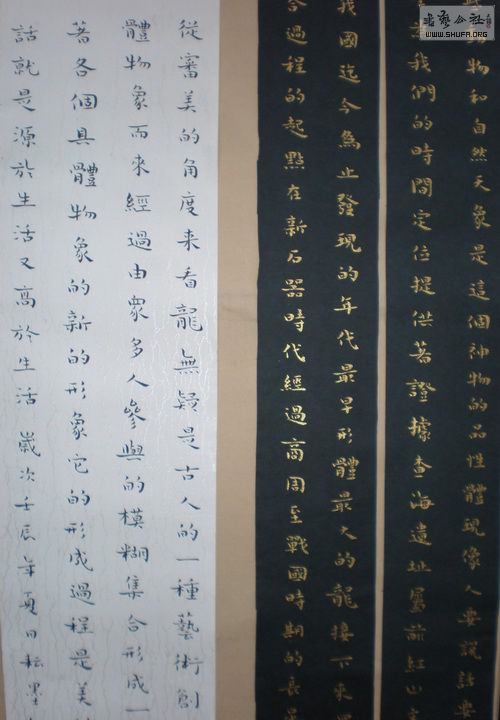 書藝公社
WWW.SHUFA.ORG
物和自然天象是這個神物的品性體現像人要說話要
我們的時間定位提供著證據查海遺址屬前紅山
我國迄今為止發現的年代最早形體最大的龍接下來
合過程的起點在新石器時代經過商周至戰國時期的長
從審美的角度来看龍無疑是古人的一種藝術創
體物象而來經過由眾多人參與的模糊集合形成一
著各個具體物象的新的形象它的形成過程是美
話就是源於生活又高於生活 歲次壬辰年夏日耘墨